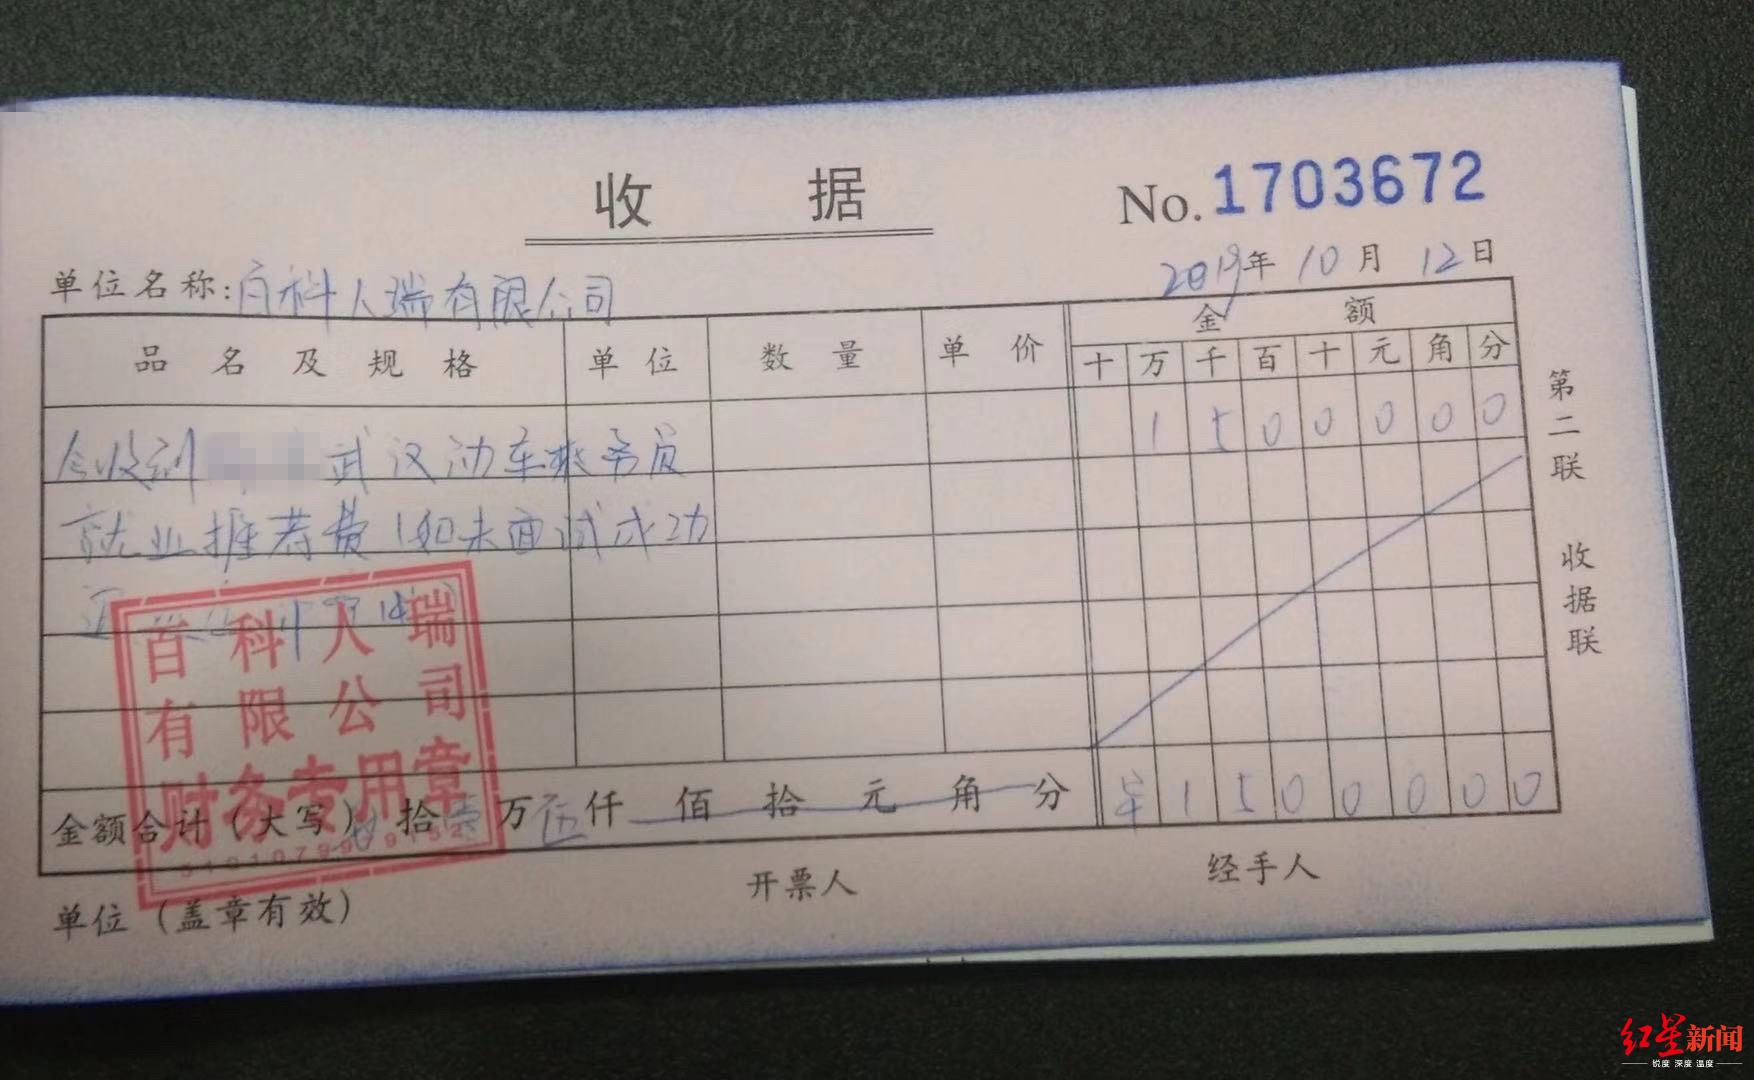 收 据
No. 1703672
单位名称:百科人瑞有限公司
2019年 10月 12日
品名及规格 单位 数量 单价 金额
十 万 千 百 十 元 角 分
今收到 武汉动车乘务员 1 5 0 0 0 0 0
就业推荐费(如未面试成功
百科人瑞
有限公司
财务专用章
金额合计(大写) 拾壹万伍仟 佰 拾 元 角 分 ¥ 1 5 0 0 0 0 0
单位(盖章有效) 开票人 经手人
第二联 收据联
红星新闻
锐度 深度 温度